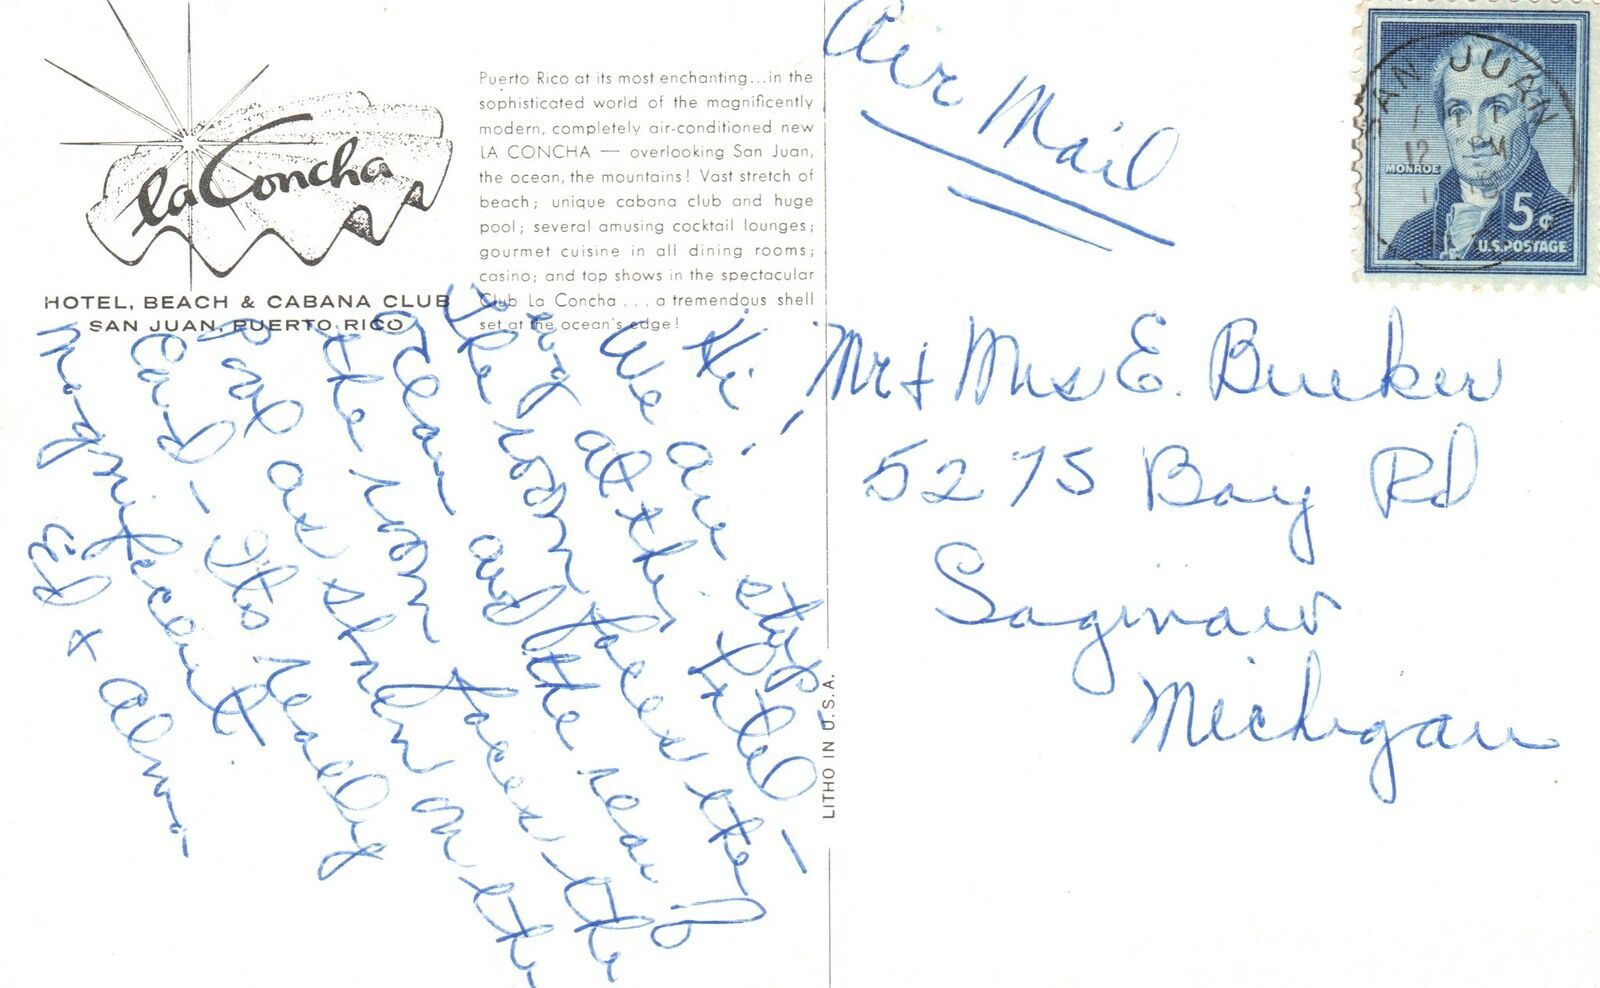 la Concha
HOTEL, BEACH & CABANA CLUB
SAN JUAN, PUERTO RICO
Puerto Rico at its most enchanting...in the
sophisticated world of the magnificently
modern, completely air-conditioned new
LA CONCHA — overlooking San Juan,
the ocean, the mountains! Vast stretch of
beach; unique cabana club and huge
pool; several amusing cocktail lounges;
gourmet cuisine in all dining rooms;
casino; and top shows in the spectacular
Club La Concha ... a tremendous shell
set at the ocean's edge!
Hi!
We are stop-
ing at this Hotel -
The room faces the
ocean and the rear of
the room faces the
Pool as shown on the
Card - Its really
magnificent
Ed + Alma
LITHO IN U.S.A.
Air Mail
SAN JUAN
12 PM
MONROE
5¢
U.S. POSTAGE
Mr + Mrs E. Bueker
5275 Bay Rd
Saginaw
Michigan